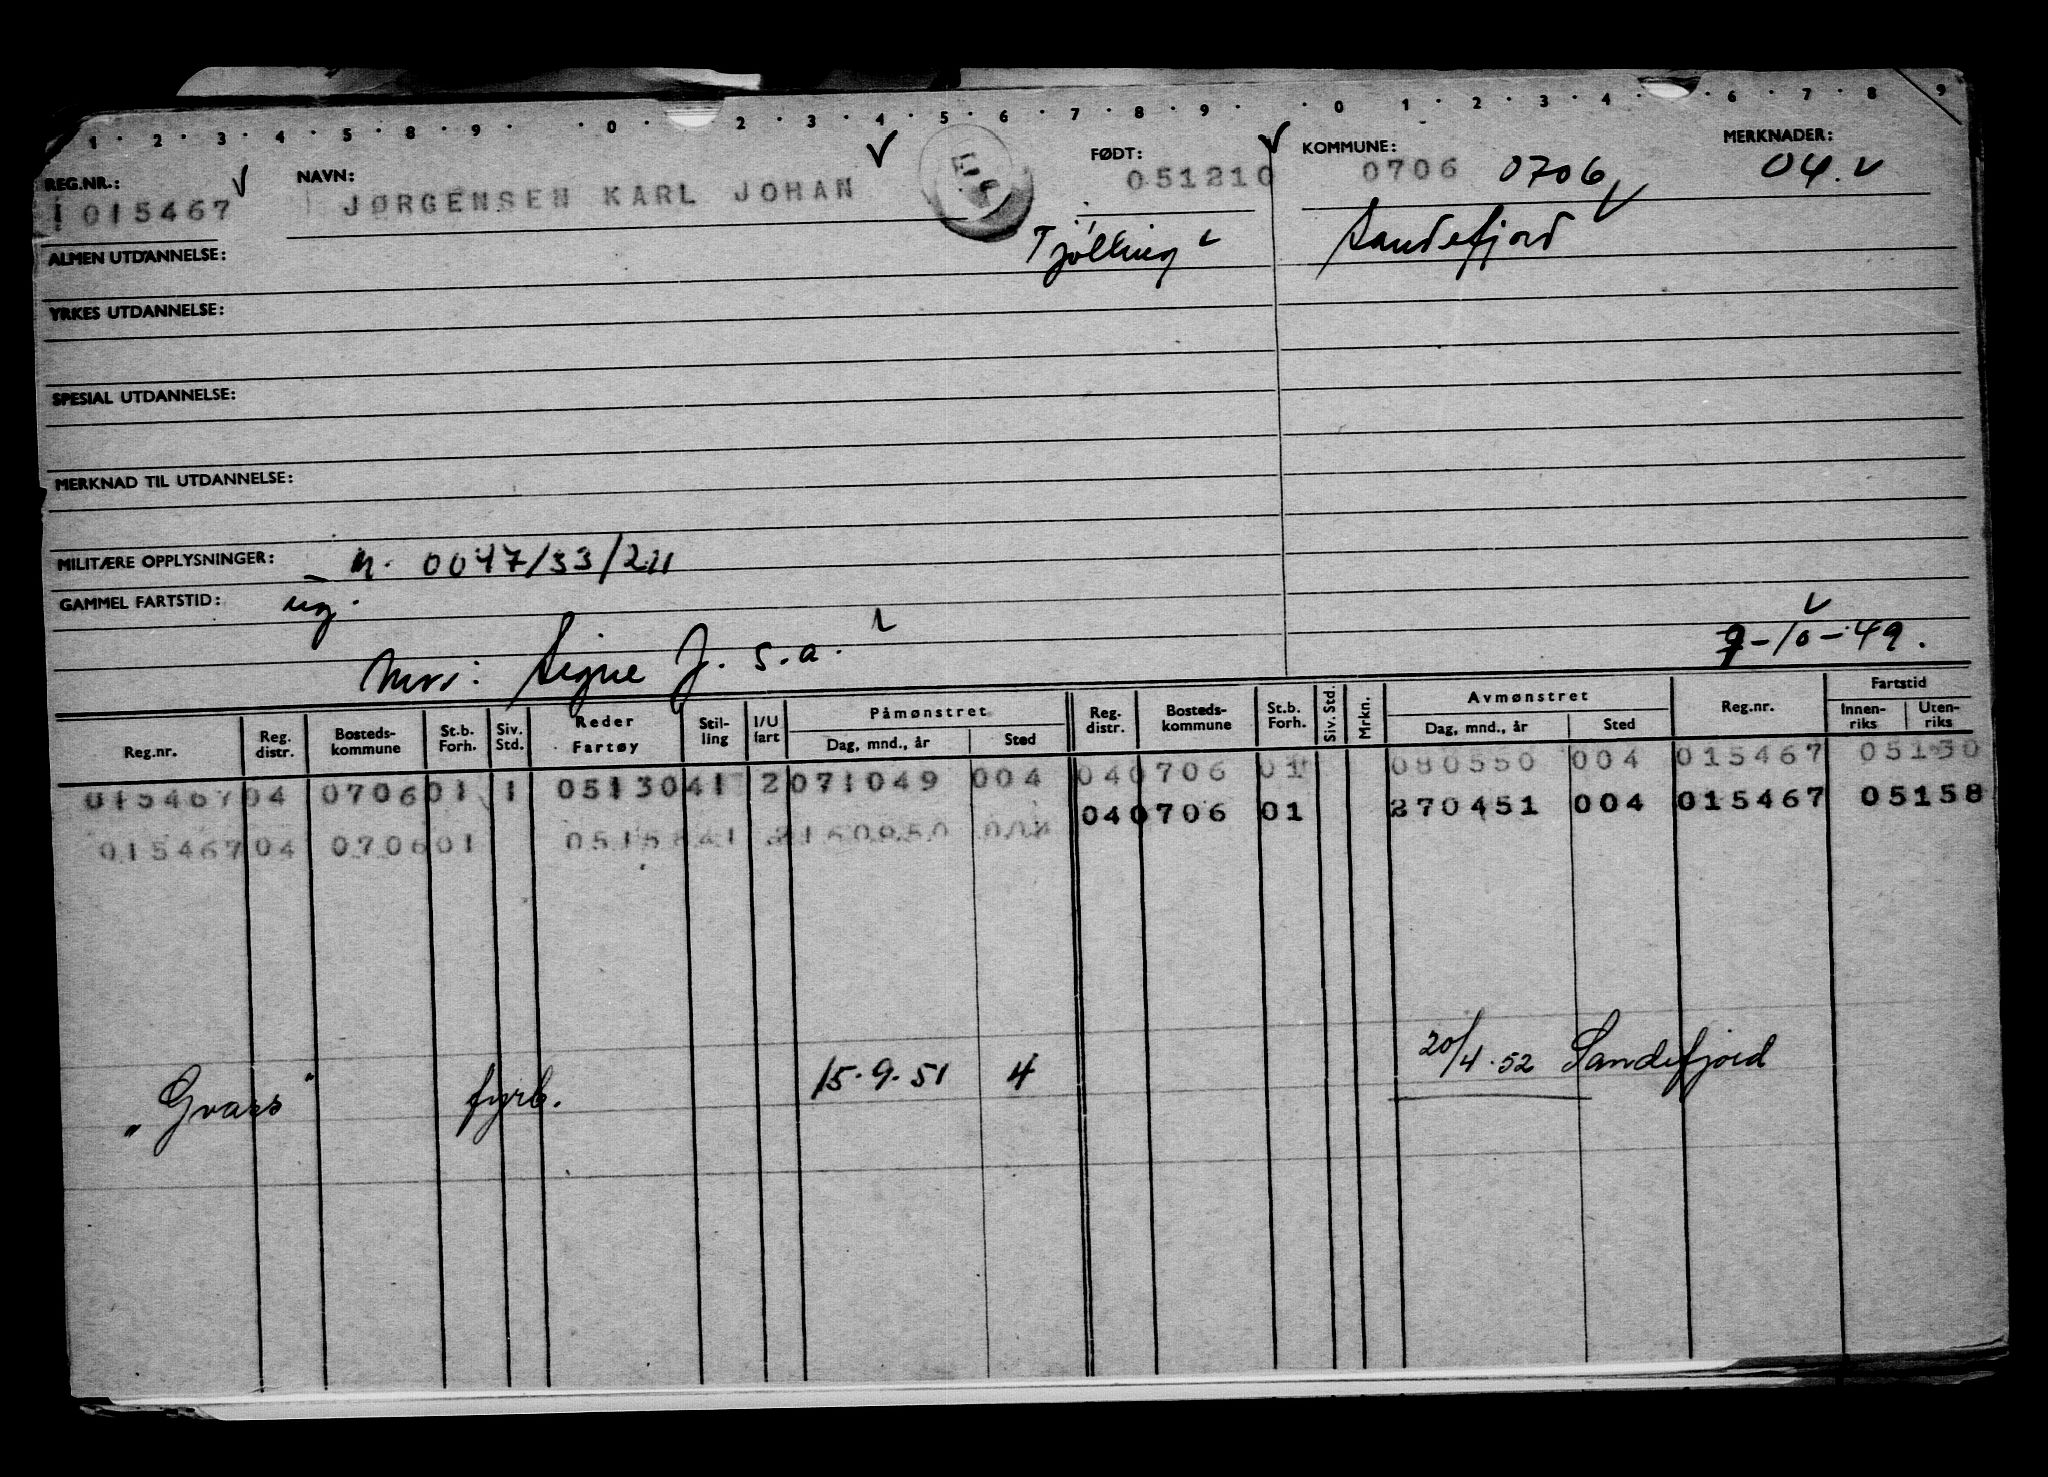 1 · 2 · 3 · 4 · 5 · 8 · 9 · · 0 · 2 · 3 · 4 · 5 · 6 · 7 · 8 · 9 · · 0 · 1 · 2 · 3 · 4 · · 6 · 7 · 8 9
REG.NR.: NAVN: FØDT: KOMMUNE: MERKNADER:
015467 JØRGENSEN KARL JOHAN 051210 0706 0706 04
Tjølling Sandefjord
ALMEN UTDANNELSE:
YRKES UTDANNELSE:
SPESIAL UTDANNELSE:
MERKNAD TIL UTDANNELSE:
MILITÆRE OPPLYSNINGER: n. 0047/33/211
GAMMEL FARTSTID: ug.
Mor: Signe J. s.a. 7-10-49.
Reg.nr. Reg. distr. Bosteds-kommune St.b. Forh. Siv. Std. Reder Fartøy Stil-ling I/U fart Påmønstret Dag, mnd., år Sted Reg. distr. Bosteds-kommune St.b. Forh. Siv. Std. Mrkn. Avmønstret Dag, mnd., år Sted Reg.nr. Fartstid Innen-riks Uten-riks
015467 04 0706 01 1 05130 41 2 071049 004 04 0706 01 080550 004 015467 05130
015467 04 0706 01 05158 41 2 150950 004 04 0706 01 270451 004 015467 05158
"Gvass" fyrb. 15.9.51 4 20/4.52 Sandefjord